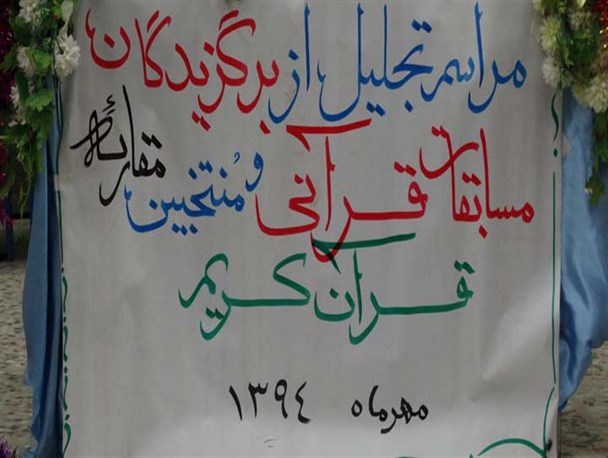 مراسم تجلیل از برگزیدگان
مسابقات قرآنی و مُنتخبین مقارئه
قرآن کریم
مهرماه ۱۳۹۴